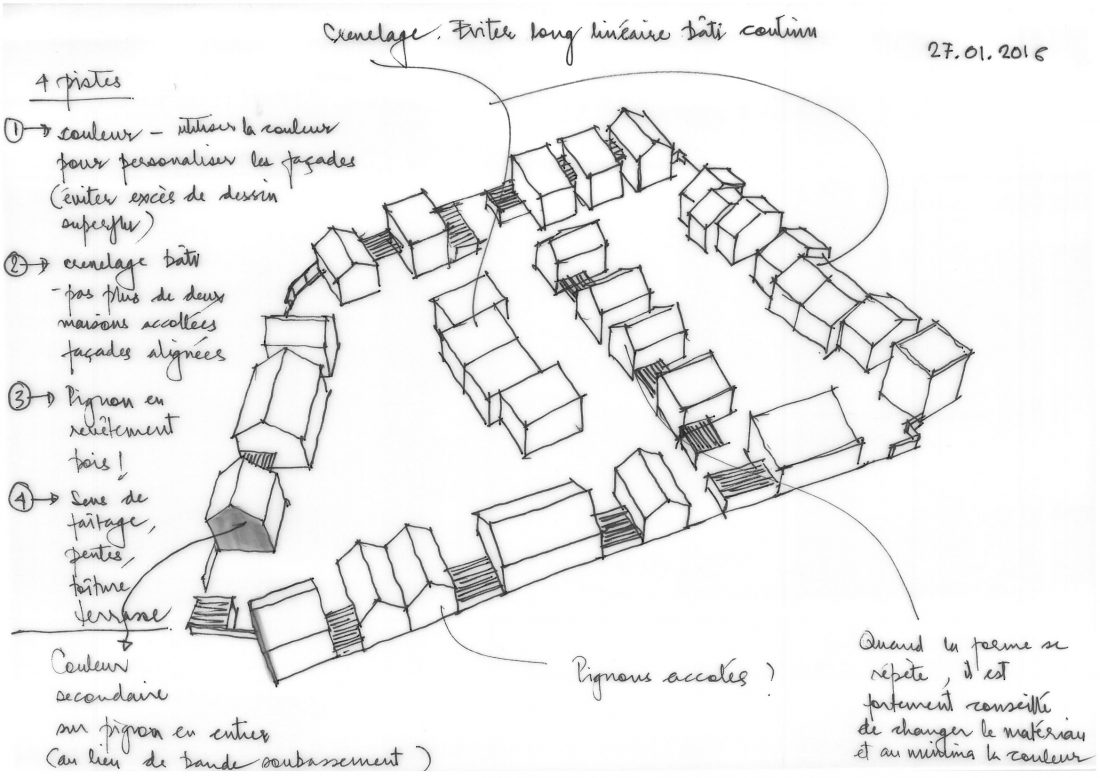 Crenelage. Eviter long linéaire bâti continu
27.01.2016
4 pistes
① → couleur - utiliser la couleur
pour personaliser les façades
(éviter excès de dessin
superflu)
② → crenelage bâti
- pas plus de deux
maisons accollées
façades alignées
③ → Pignon en
revêtement
bois !
④ → Sens de
faitage,
pentes,
toiture
terrasse
Couleur
secondaire
sur pignon en entier
(au lieu de bande soubassement)
Pignons accolés ?
Quand la forme se
répète, il est
fortement conseillé
de changer le matériau
et au minima la couleur